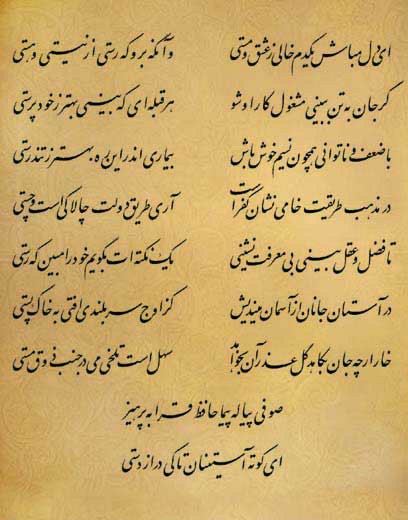 ای دل مباش یکدم خالی ز عشق و مستی وآنگه برو که رستی از نیستی و هستی
گر جان به تن ببینی مشغول کار او شو هر قبله ای که بینی بهتر ز خودپرستی
با ضعف و ناتوانی همچون نسیم خوش باش بیماری اندر این ره بهتر ز تندرستی
در مذهب طریقت خامی نشان کفر است آری طریق دولت چالاکی است و چستی
تا فضل و عقل بینی بی معرفت نشینی یک نکته ات بگویم خود را مبین که رستی
در آستان جانان از آسمان میندیش کز اوج سربلندی افتی به خاک پستی
خار ار چه جان بکاهد گل عذر آن بخواهد سهل است تلخی می در جنب ذوق مستی
صوفی پیاله پیما حافظ قرابه پرهیز
ای کوته آستینان تا کی درازدستی